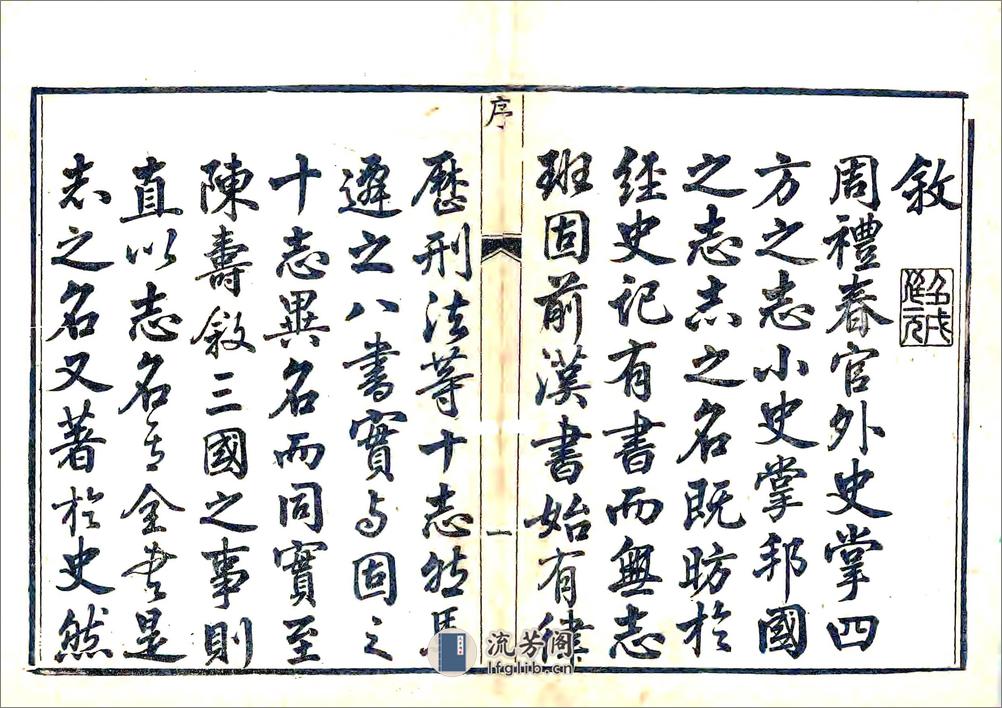 敘
周禮春官外史掌四
方之志小史掌邦國
之志志之名既昉於
經史記有書而無志
班固前漢書始有律
序
一
厯刑法等十志然馬
遷之八書實与固之
十志異名而同實至
陳壽敘三國之事則
直以志名其全書是
志之名又著於史然
流芳阁
lfglib.cn